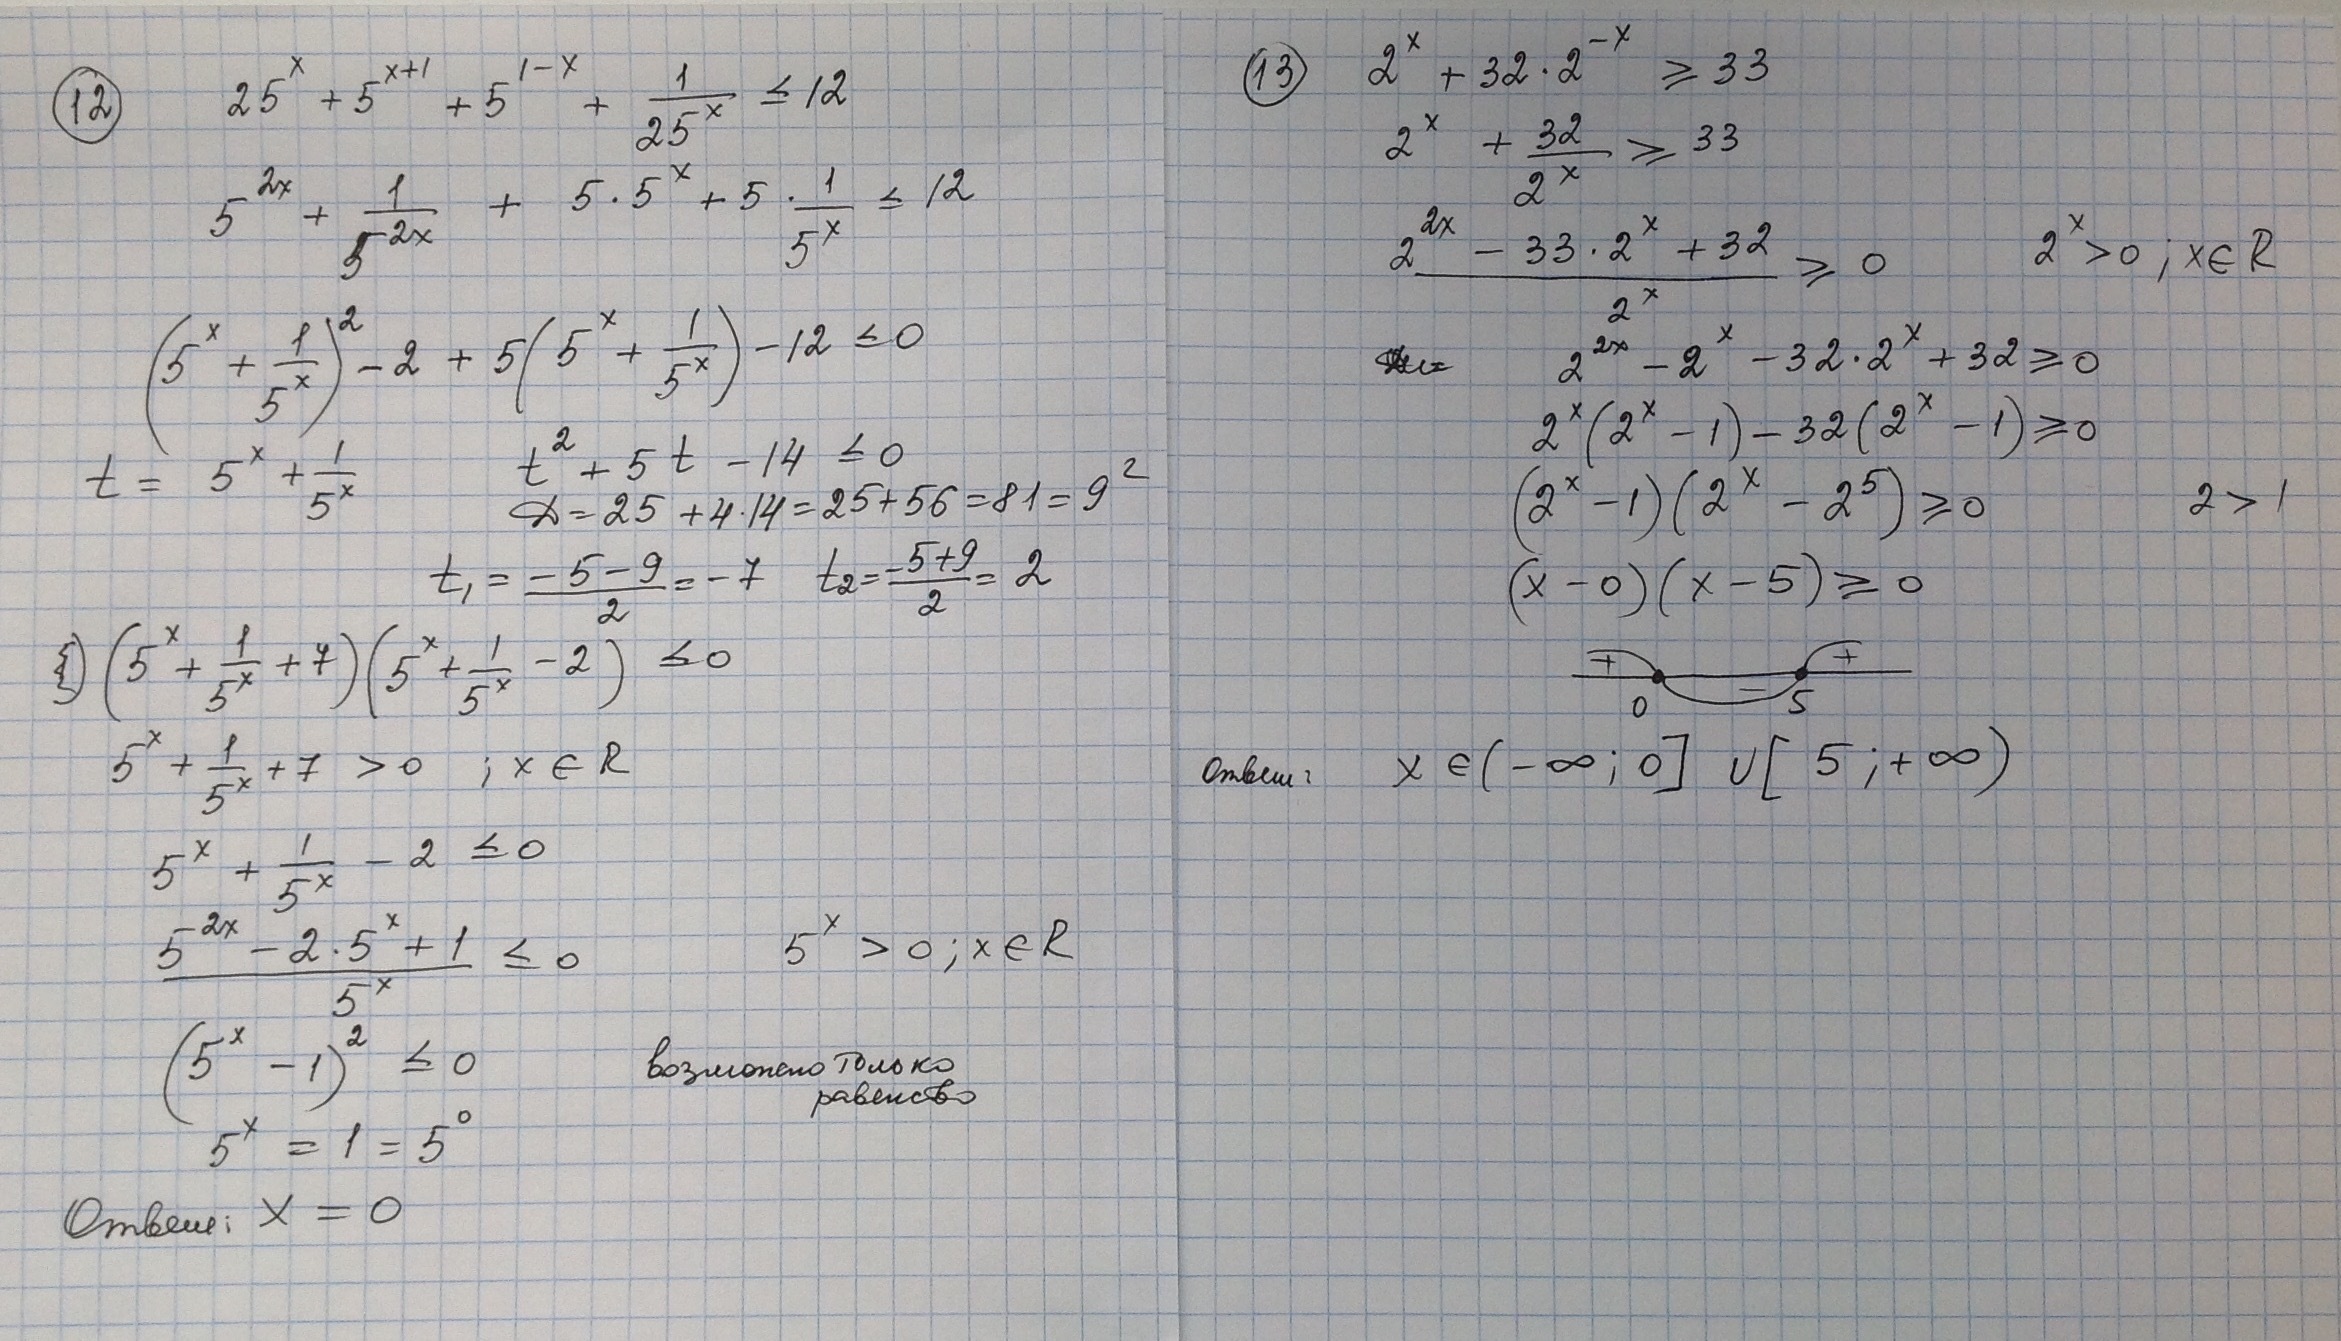 12) 25^x + 5^(x+1) + 5^(1-x) + 1/25^x ≤ 12
5^(2x) + 1/5^(2x) + 5·5^x + 5·1/5^x ≤ 12
(5^x + 1/5^x)^2 - 2 + 5(5^x + 1/5^x) - 12 ≤ 0
t = 5^x + 1/5^x t^2 + 5t - 14 ≤ 0
D = 25 + 4·14 = 25 + 56 = 81 = 9^2
t₁ = (-5-9)/2 = -7 t₂ = (-5+9)/2 = 2
(5^x + 1/5^x + 7)(5^x + 1/5^x - 2) ≤ 0
5^x + 1/5^x + 7 > 0 ; x ∈ R
5^x + 1/5^x - 2 ≤ 0
(5^(2x) - 2·5^x + 1)/5^x ≤ 0 5^x > 0 ; x ∈ R
(5^x - 1)^2 ≤ 0 возможно только
равенство
5^x = 1 = 5^0
Ответ: x = 0
13) 2^x + 32·2^(-x) ≥ 33
2^x + 32/2^x ≥ 33
(2^(2x) - 33·2^x + 32)/2^x ≥ 0 2^x > 0 ; x ∈ R
2^(2x) - 2^x - 32·2^x + 32 ≥ 0
2^x(2^x - 1) - 32(2^x - 1) ≥ 0
(2^x - 1)(2^x - 2^5) ≥ 0 2 > 1
(x - 0)(x - 5) ≥ 0
+ - +
0 5
Ответ: x ∈ (-∞; 0] ∪ [5; +∞)